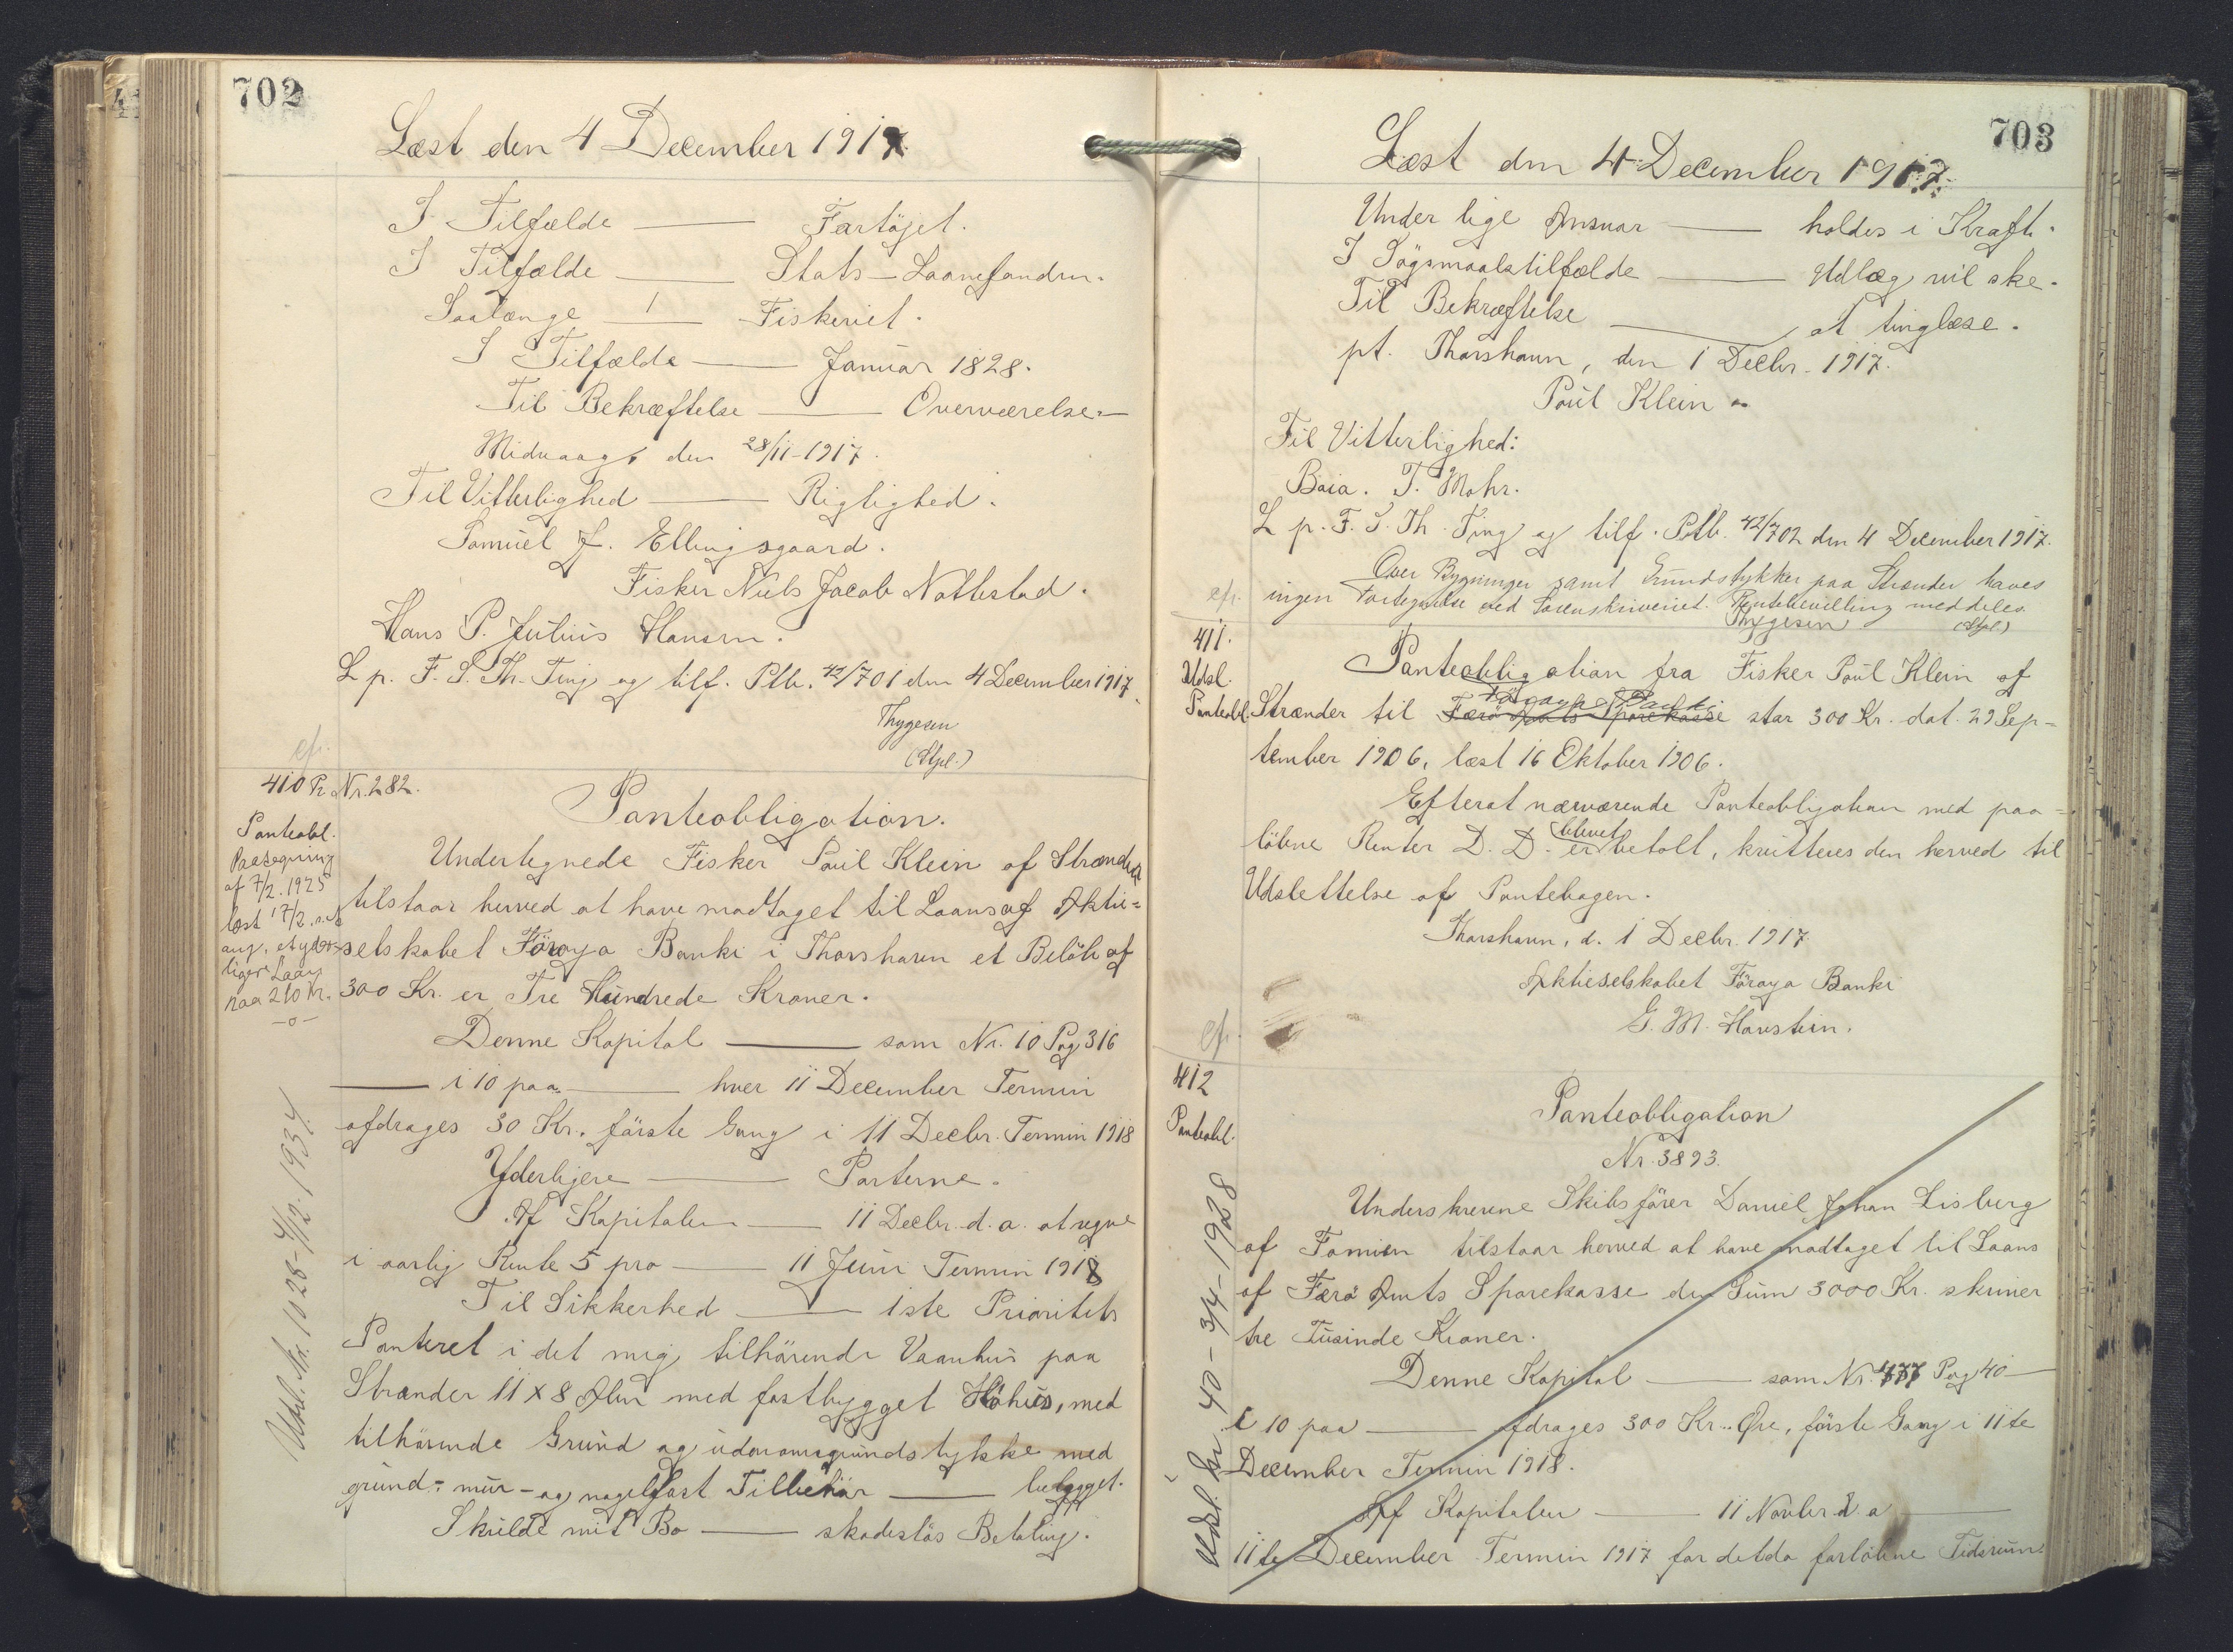 702
Læst den 4 December 1917.
I Tilfælde — Fartöjet.
I Tilfælde — Stats-Laanefanden.
Saalænge — Fiskeriet.
I Tilfælde — Januar 1828.
Til Bekræftelse — Overværelse.
Midvaag, den 28/11-1917.
Til Vitterlighed — Rigtighed.
Samuel J. Ellingsgaard.
Fisker Niels Jacob Nattestad.
Hans P. Julius Hansen.
L p. F. S. Th. Ting og tilf. Ptb. 42/701 den 4 December 1917.
Thygesen
(Stpl.)
cfr.
410 Pr. Nr. 282.
Panteobl.
Paategning
af 7/2. 1925
læst 17/2. s.A
ang. et yder-
ligere Laan
paa 210 Kr.
-o-
Udsl. Nr. 1028-4/12. 1934.
Panteobligation.
Undertegnede Fisker Poul Klein af Strænder
tilstaar herved at have modtaget til Laans af Aktie=
selskabet Föroya Banki i Thorshavn et Belöb af
300 Kr. er Tre Hundrede Kroner.
Denne Kapital — som Nr. 10 Pag 316
— i 10 paa — hver 11 December Termin
afdrages 30 Kr. förste Gang i 11 Decbr. Termin 1918
Yderligere — Parterne.
Af Kapitalen — 11 Decbr. d. a. at regne
i aarlig Rente 5 pro — 11 Juni Termin 1918
Til Sikkerhed — 1ste Prioritets
Panteret i det mig tilhörende Vaanhus paa
Strænder 11 x 8 Alen med fastbygget Höhus, med
tilhörende Grund og udenomsgrundstykke med
grund- mur- og nagelfast Tilbehör — bebygget.
Skulde mit Bo — skadeslös Betaling.
703
Læst den 4 December 1917.
Under lige Ansvar — holdes i Kraft.
I Sögsmaalstilfælde — Udlæg vil ske.
Til Bekræftelse — at tinglæse.
pt. Thorshavn, den 1 Decbr. 1917.
Poul Klein
Til Vitterlighed:
Baia. T. Mohr.
L p. F. S. Th. Ting og tilf. Ptb. 42/702 den 4 December 1917.
Over Bygninger samt Grundstykker paa Strænder haves
ingen Fortegnelse ved Sorenskriveriet. Pantebevilling meddeles.
Thygesen
(Stpl.)
cfr.
411.
Udsl.
Panteobl.
Panteobligation fra Fisker Poul Klein af
Föroya Banki
Strænder til Færö Amts Sparekasse stor 300 Kr. dat. 29 Sep-
tember 1906, læst 16 Oktober 1906.
Efterat nærværende Panteobligation med paa=
löbne Renter D. D. er blevet betalt, kvitteres den herved til
Udslettelse af Pantebogen.
Thorshavn, d. 1 Decbr. 1917
Aktieselskabet Föroya Banki
G. M. Hanstein.
cfr.
412
Panteobl.
Udsl. Nr 40-3/4-1928
Panteobligation
Nr. 3893.
Underskrevne Skibsförer Daniel Johan Lisberg
af Famien tilstaar herved at have modtaget til Laans
af Færö Amts Sparekasse den Sum 3000 Kr. skriver
tre Tusinde Kroner.
Denne Kapital — som Nr. 477 Pag 40 —
i 10 paa — fdrages 300 Kr. Øre, förste Gang i 11te
December Termin 1918.
Af Kapitalen — 11 Novbr. d. a —
11te December Termin 1917 for det da forlöbne Tidsrum